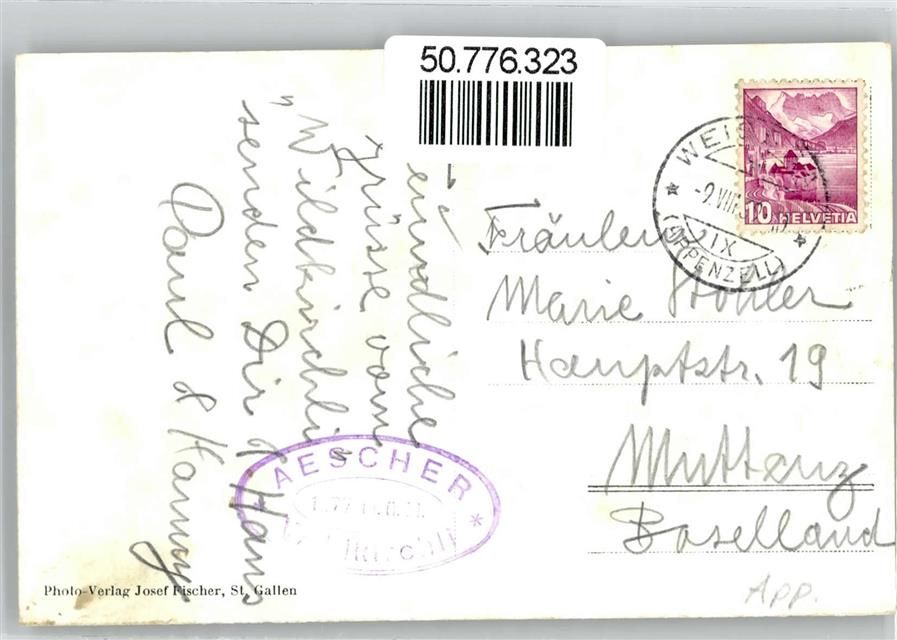 50.776.323
10 HELVETIA
WEIS
-9.VIII
(APPENZELL)
Freundliche
Grüsse vom
"Wildkirchli"
senden Dir & Hans
Paul & Hanny
Fräulein
Marie Stohler
Hauptstr. 19
Muttenz
Baselland
AESCHER
Photo-Verlag Josef Fischer, St. Gallen
App.